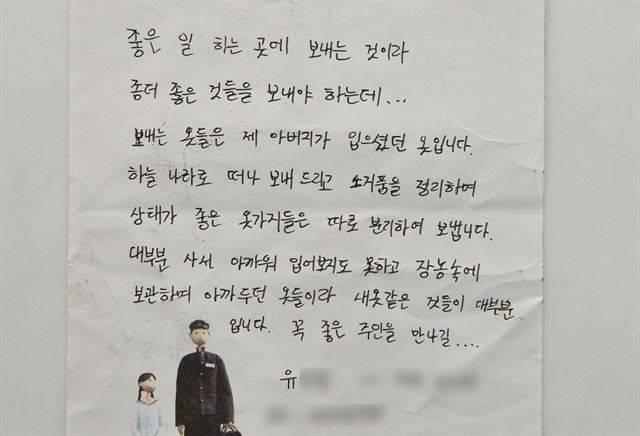 좋은 일 하는 곳에 보내는 것이라
좀더 좋은 것들을 보내야 하는데...
보내는 옷들은 제 아버지가 입으셨던 옷입니다.
하늘 나라로 떠나 보내 드리고 소거품을 정리하여
상태가 좋은 옷가지들은 따로 분리하여 보냅니다.
대부분 사선 아까워 입어보지도 못하고 장농속에
보관하며 아까두던 옷들이라 새옷같은 것들이 대부분
입니다. 꼭 좋은 주인을 만나길....
유